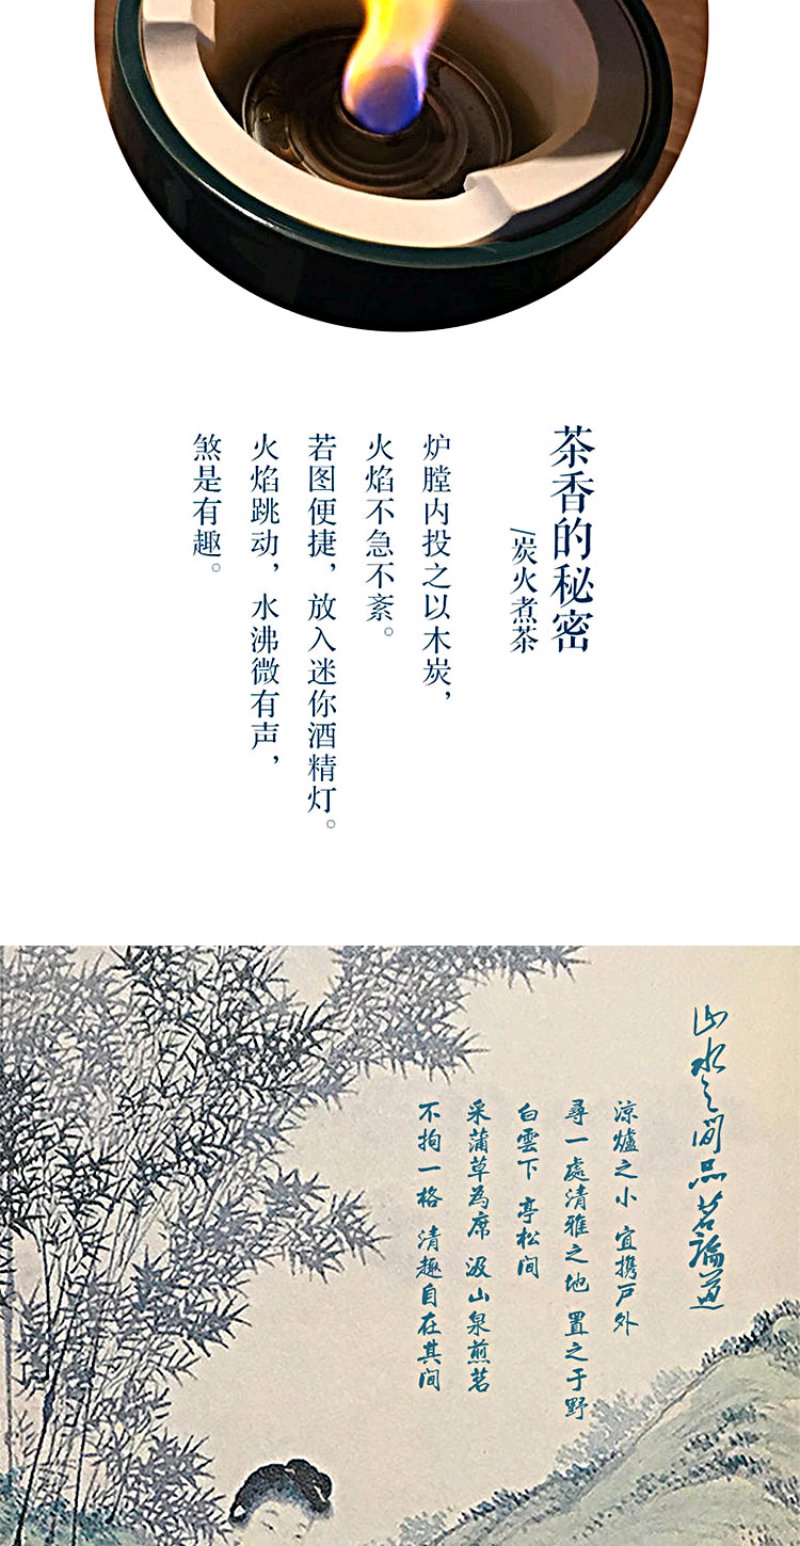 茶香的秘密
/炭火煮茶
炉膛内投之以木炭，
火焰不急不紊。
若图便捷，放入迷你酒精灯。
火焰跳动，水沸微有声，
煞是有趣。
山水之间品茗論道
涼爐之小 宜携戶外
尋一處清雅之地 置之于野
白雲下 亭松间
采蒲草為席 汲山泉煎茗
不拘一格 清趣自在其间